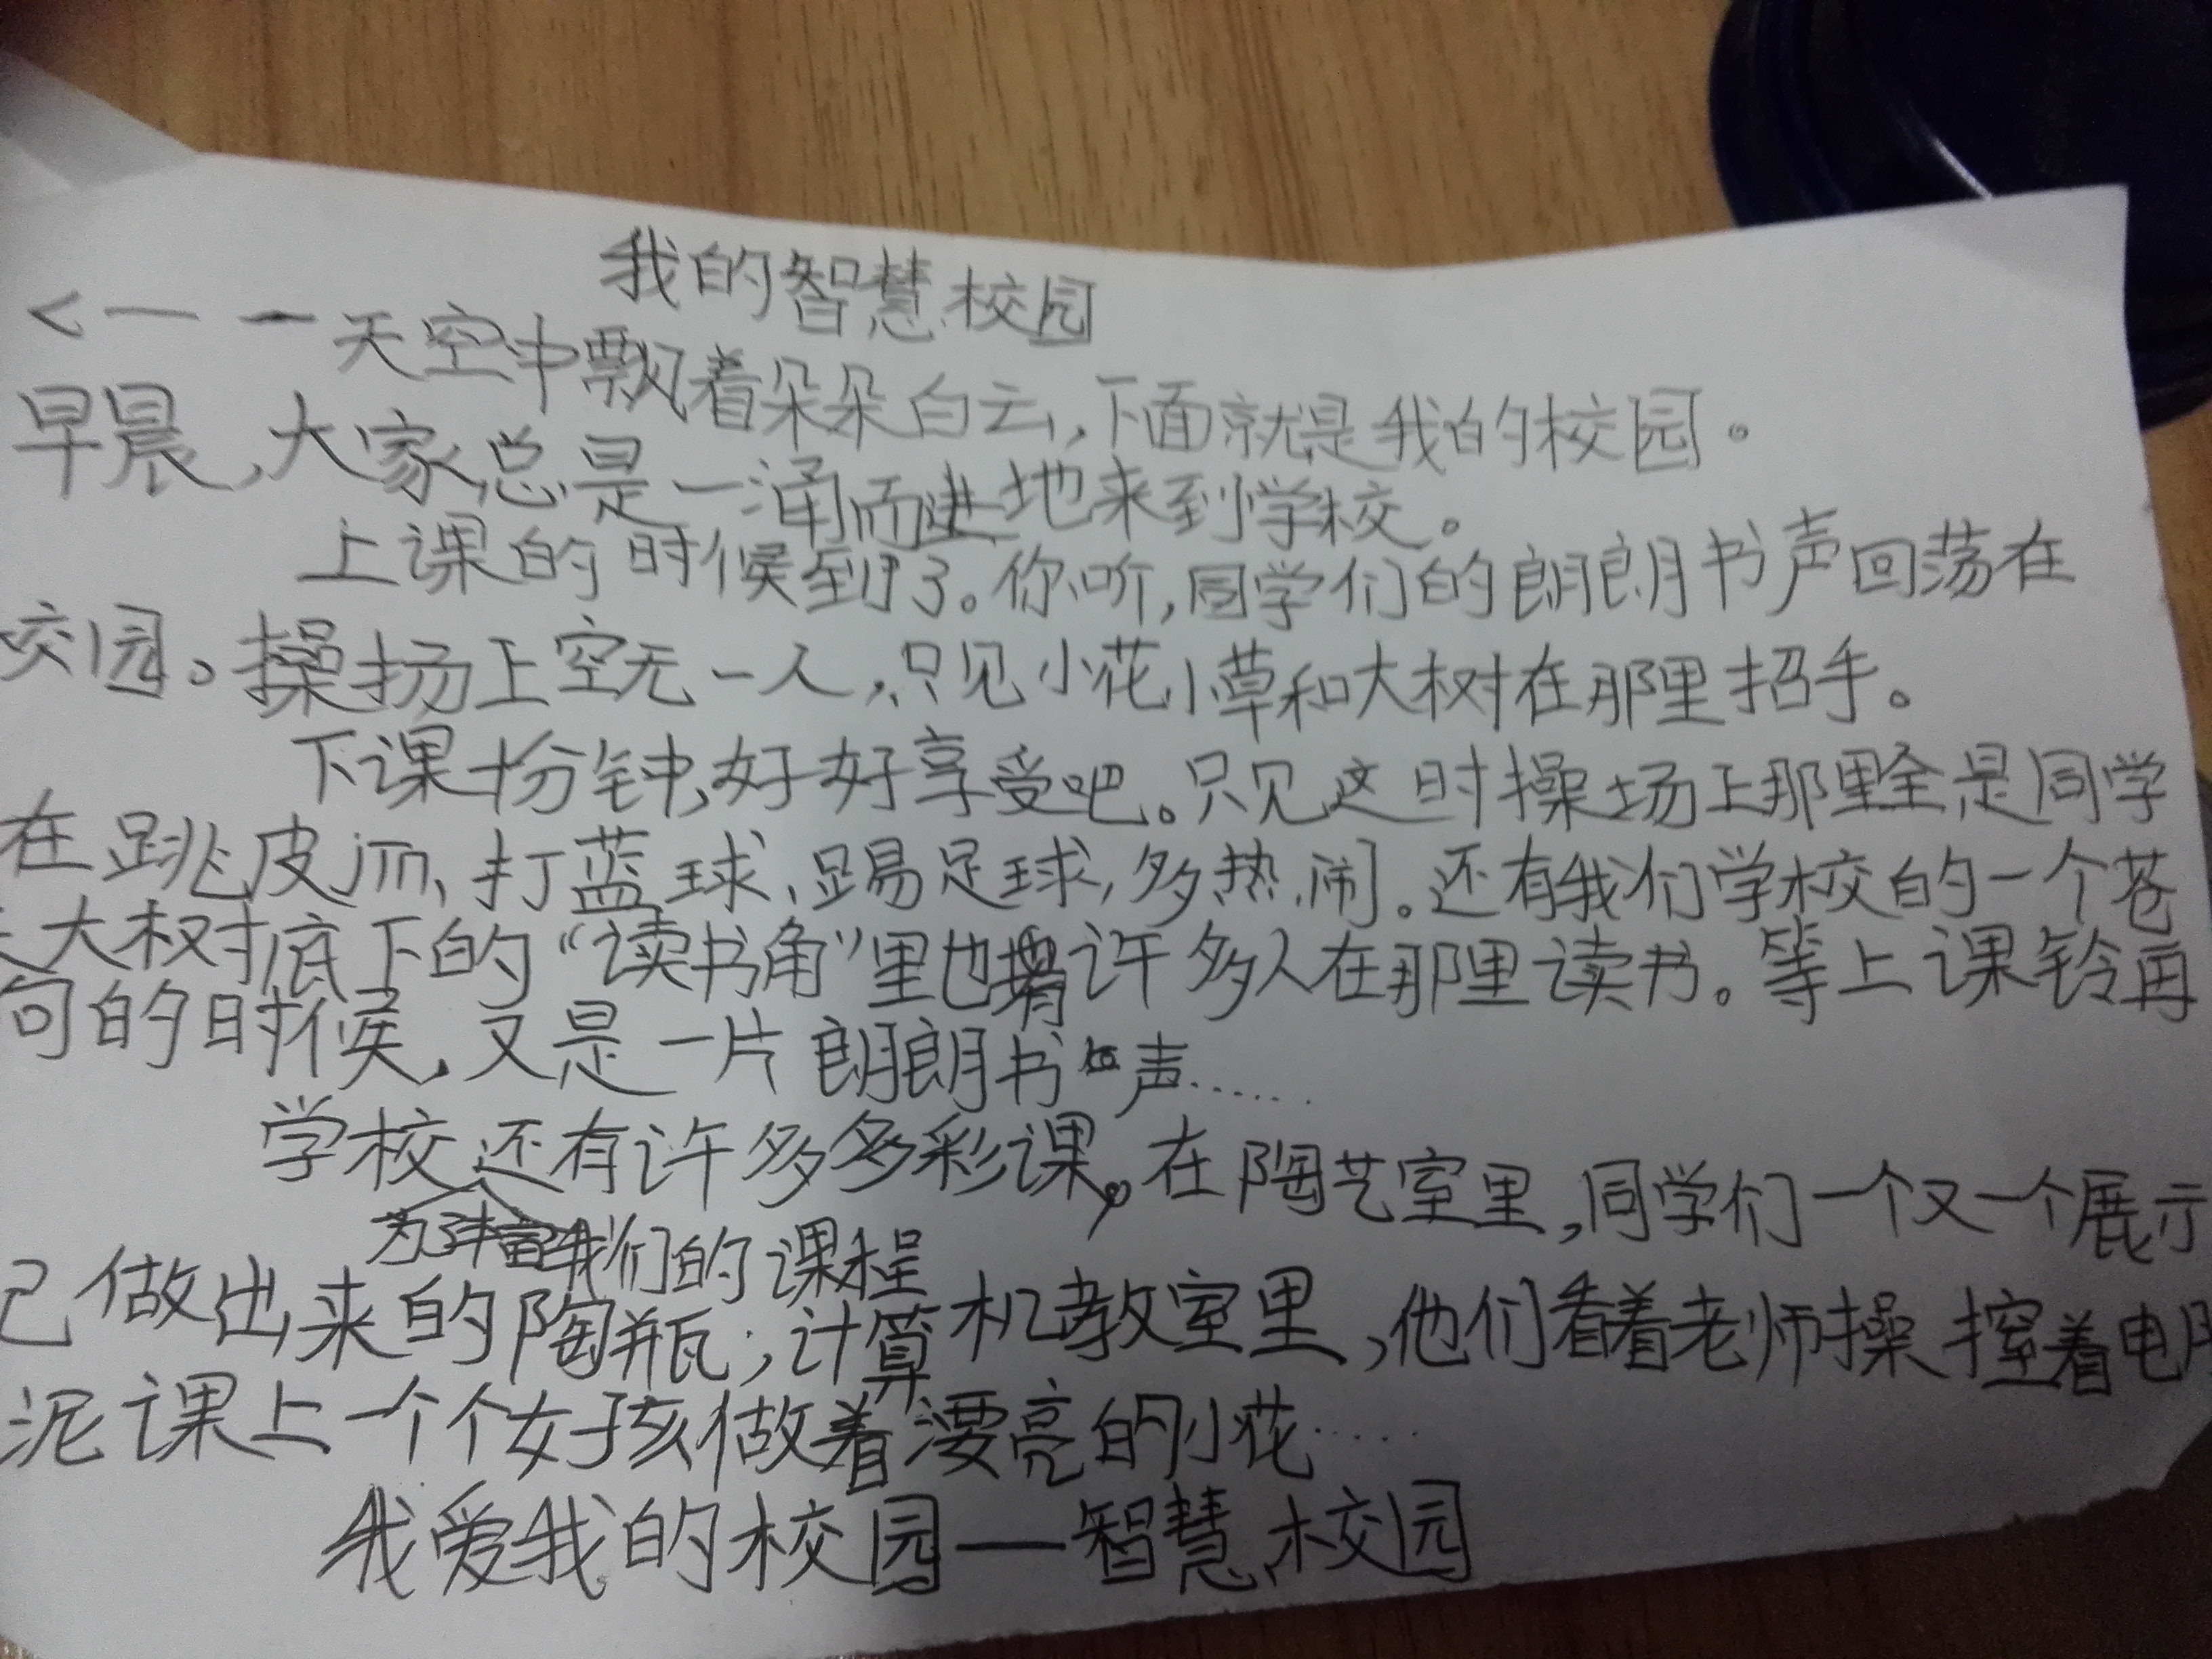 我的智慧校园
<— — 天空中飘着朵朵白云,下面就是我的校园。
早晨,大家总是一涌而进地来到学校。
上课的时候到了。你听,同学们的朗朗书声回荡在
校园。操场上空无一人,只见小花小草和大树在那里招手。
下课十分钟,好好享受吧。只见这时操场上那里全是同学
在跳皮筋、打蓝球、踢足球,多热闹。还有我们学校的一个苍
大树底下的“读书角”里也有许多人在那里读书。等上课铃再
的时候,又是一片朗朗书声……
学校还有许多多彩课。在陶艺室里,同学们一个又一个展示
为丰富我们的课程
己做出来的陶瓶;计算机教室里,他们看着老师操控着电
泥课上一个个女孩做着漂亮的小花……
我爱我的校园—智慧校园